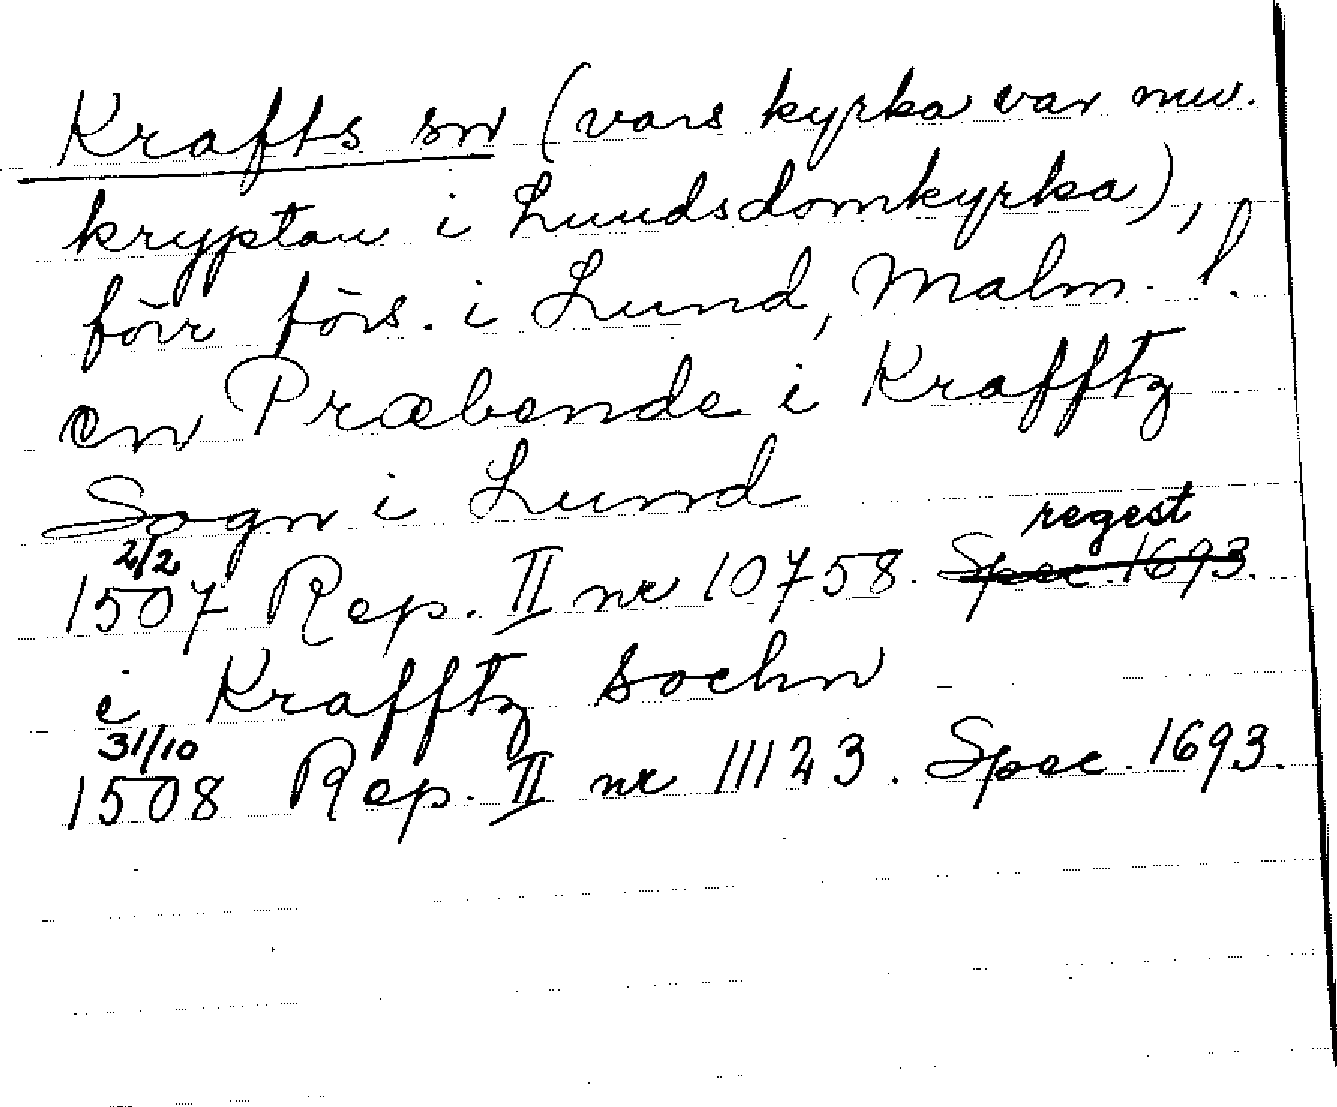 Krafts sn (vars kyrka var nuv.
kryptan i Lunds domkyrka),
förr förs. i Lund, Malm. l.
en Præbende i Krafftz
Sogn i Lund
regest
2/2
1507 Rep. II nr 10758. Spec. 1693.
i Krafftz sochn
31/10
1508 Rep. II nr 11123. Spec. 1693.